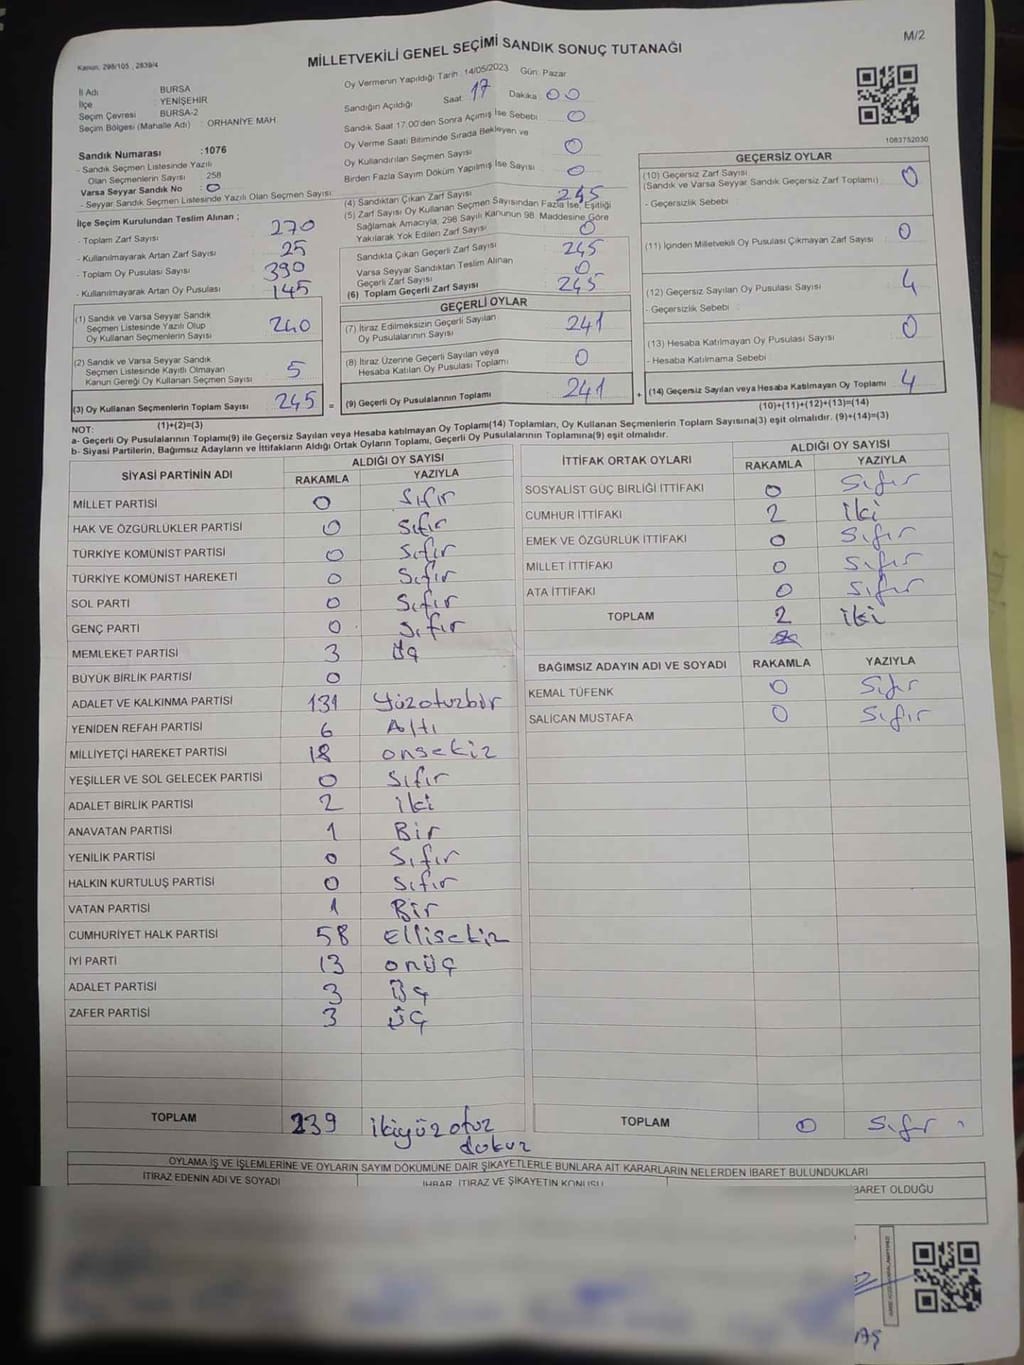 M/2
Kanun: 298/105 , 2839/4
MİLLETVEKİLİ GENEL SEÇİMİ SANDIK SONUÇ TUTANAĞI
İl Adı BURSA
İlçe : YENİŞEHİR
Seçim Çevresi BURSA-2
Seçim Bölgesi (Mahalle Adı) : ORHANİYE MAH.
Oy Vermenin Yapıldığı Tarih : 14/05/2023 Gün: Pazar
Sandığın Açıldığı Saat: 17 Dakika: 00
Sandık Saat 17:00'den Sonra Açılmış İse Sebebi 0
Oy Verme Saati Bitiminde Sırada Bekleyen ve
Oy Kullandırılan Seçmen Sayısı 0
Birden Fazla Sayım Döküm Yapılmış İse Sayısı 0
1083752030
Sandık Numarası : 1076
- Sandık Seçmen Listesinde Yazılı
Olan Seçmenlerin Sayısı : 258
Varsa Seyyar Sandık No : 0
- Seyyar Sandık Seçmen Listesinde Yazılı Olan Seçmen Sayısı:
İlçe Seçim Kurulundan Teslim Alınan ;
- Toplam Zarf Sayısı 270
- Kullanılmayarak Artan Zarf Sayısı 25
- Toplam Oy Pusulası Sayısı 390
- Kullanılmayarak Artan Oy Pusulası 145
(1) Sandık ve Varsa Seyyar Sandık
Seçmen Listesinde Yazılı Olup
Oy Kullanan Seçmenlerin Sayısı 240
(2) Sandık ve Varsa Seyyar Sandık
Seçmen Listesinde Kayıtlı Olmayan
Kanun Gereği Oy Kullanan Seçmen Sayısı 5
(3) Oy Kullanan Seçmenlerin Toplam Sayısı 245 =
(1)+(2)=(3)
(4) Sandıktan Çıkan Zarf Sayısı 245
(5) Zarf Sayısı Oy Kullanan Seçmen Sayısından Fazla İse, Eşitliği
Sağlamak Amacıyla, 298 Sayılı Kanunun 98. Maddesine Göre
Yakılarak Yok Edilen Zarf Sayısı 0
Sandıkta Çıkan Geçerli Zarf Sayısı 245
Varsa Seyyar Sandıktan Teslim Alınan
Geçerli Zarf Sayısı 0
(6) Toplam Geçerli Zarf Sayısı 245
GEÇERLİ OYLAR
(7) İtiraz Edilmeksizin Geçerli Sayılan
Oy Pusulalarının Sayısı 241
(8) İtiraz Üzerine Geçerli Sayılan veya
Hesaba Katılan Oy Pusulası Toplamı 0
(9) Geçerli Oy Pusulalarının Toplamı 241 +
GEÇERSİZ OYLAR
(10) Geçersiz Zarf Sayısı
(Sandık ve Varsa Seyyar Sandık Geçersiz Zarf Toplamı) 0
- Geçersizlik Sebebi :
(11) İçinden Milletvekili Oy Pusulası Çıkmayan Zarf Sayısı 0
(12) Geçersiz Sayılan Oy Pusulası Sayısı 4
- Geçersizlik Sebebi :
(13) Hesaba Katılmayan Oy Pusulası Sayısı 0
- Hesaba Katılmama Sebebi :
(14) Geçersiz Sayılan veya Hesaba Katılmayan Oy Toplamı 4
(10)+(11)+(12)+(13)=(14)
NOT:
a- Geçerli Oy Pusulalarının Toplamı(9) ile Geçersiz Sayılan veya Hesaba katılmayan Oy Toplamı(14) Toplamları, Oy Kullanan Seçmenlerin Toplam Sayısına(3) eşit olmalıdır. (9)+(14)=(3)
b- Siyasi Partilerin, Bağımsız Adayların ve İttifakların Aldığı Ortak Oyların Toplamı, Geçerli Oy Pusulalarının Toplamına(9) eşit olmalıdır.
SİYASİ PARTİNİN ADI ALDIĞI OY SAYISI
RAKAMLA YAZIYLA
MİLLET PARTİSİ 0 Sıfır
HAK VE ÖZGÜRLÜKLER PARTİSİ 0 Sıfır
TÜRKİYE KOMÜNİST PARTİSİ 0 Sıfır
TÜRKİYE KOMÜNİST HAREKETİ 0 Sıfır
SOL PARTİ 0 Sıfır
GENÇ PARTİ 0 Sıfır
MEMLEKET PARTİSİ 3 Üç
BÜYÜK BİRLİK PARTİSİ 0
ADALET VE KALKINMA PARTİSİ 131 Yüzotuzbir
YENİDEN REFAH PARTİSİ 6 Altı
MİLLİYETÇİ HAREKET PARTİSİ 18 onsekiz
YEŞİLLER VE SOL GELECEK PARTİSİ 0 Sıfır
ADALET BİRLİK PARTİSİ 2 iki
ANAVATAN PARTİSİ 1 Bir
YENİLİK PARTİSİ 0 Sıfır
HALKIN KURTULUŞ PARTİSİ 0 Sıfır
VATAN PARTİSİ 1 Bir
CUMHURİYET HALK PARTİSİ 58 Ellisekiz
İYİ PARTİ 13 onüç
ADALET PARTİSİ 3 Üç
ZAFER PARTİSİ 3 Üç
TOPLAM 239 ikiyüzotuz
dokuz
İTTİFAK ORTAK OYLARI ALDIĞI OY SAYISI
RAKAMLA YAZIYLA
SOSYALİST GÜÇ BİRLİĞİ İTTİFAKI 0 Sıfır
CUMHUR İTTİFAKI 2 İki
EMEK VE ÖZGÜRLÜK İTTİFAKI 0 Sıfır
MİLLET İTTİFAKI 0 Sıfır
ATA İTTİFAKI 0 Sıfır
TOPLAM 2 iki
BAĞIMSIZ ADAYIN ADI VE SOYADI RAKAMLA YAZIYLA
KEMAL TÜFENK 0 Sıfır
SALİCAN MUSTAFA 0 Sıfır
TOPLAM 0 Sıfır
OYLAMA İŞ VE İŞLEMLERİNE VE OYLARIN SAYIM DÖKÜMÜNE DAİR ŞİKAYETLERLE BUNLARA AİT KARARLARIN NELERDEN İBARET BULUNDUKLARI
İTİRAZ EDENİN ADI VE SOYADI İHBAR, İTİRAZ VE ŞİKAYETİN KONUSU BARET OLDUĞU